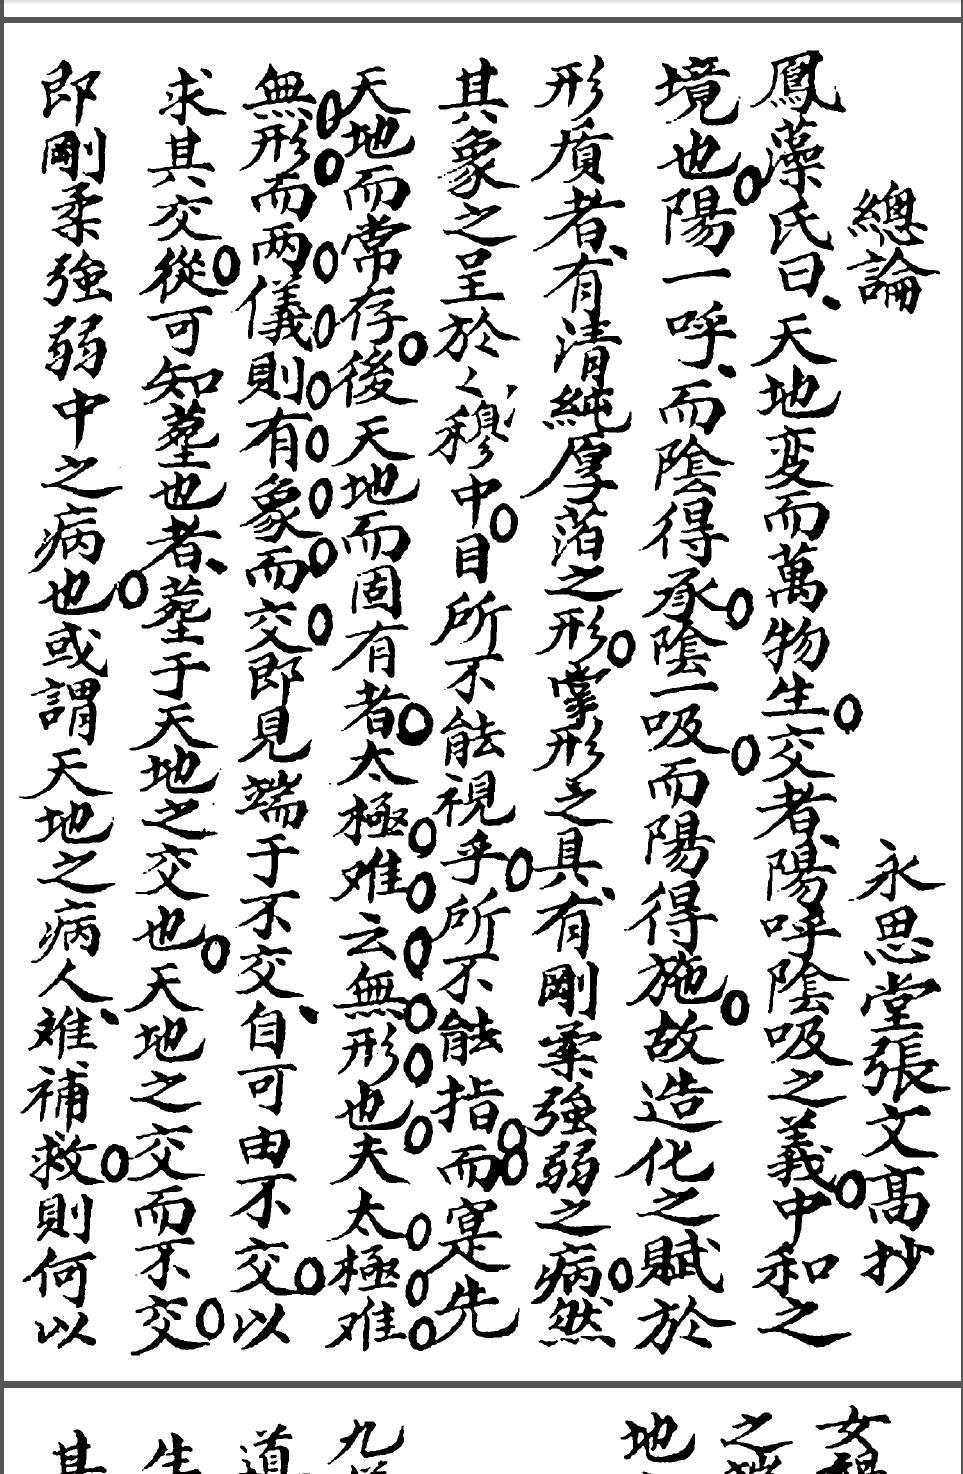 總論
永思堂張文髙抄
鳳藻氏曰、天地变而萬物生。交者、陽呼陰吸之義。中和之
境也。陽一呼、而陰得承。陰一吸。而陽得施。故造化之賦於
形質者、有清純厚萡之形。掌形之具、有剛柔強弱之病。然
其象之呈於〻穆中。目所不能視乎。所不能指。而寔先
天地而常存。後天地而固有者。太極难云無形也夫太極难
無形而两儀則有象而交即見端于不交、自可由不交。以
求其交從。可知塟也者、塟于天地之交也。天地之交而不交。
即剛柔強弱中之病也。或謂天地之病人难、補救。則何以
女
之
地
九
道
生
其